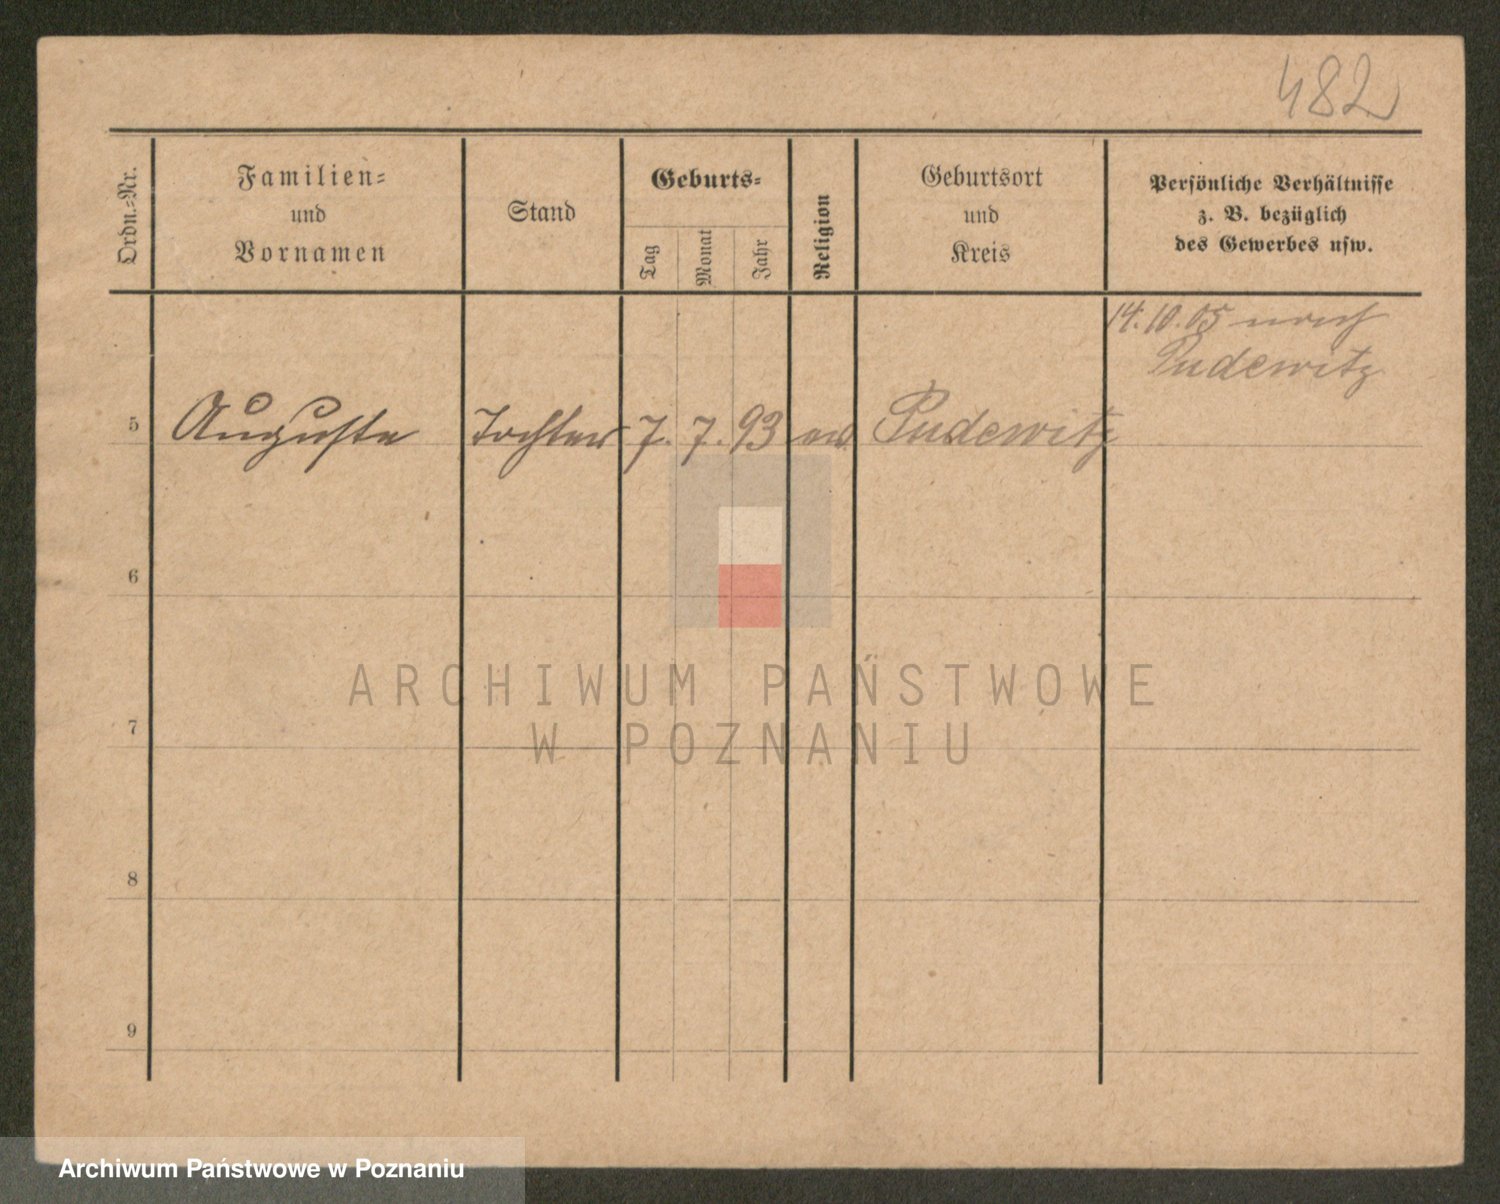 482
Ordn.-Nr.
Familien-
und
Vornamen
Stand
Geburts-
Tag
Monat
Jahr
Religion
Geburtsort
und
Kreis
Persönliche Verhältnisse
z. B. bezüglich
des Gewerbes usw.
14.10.05 nach
Pudewitz
5 Auguste Tochter 7. 7. 93 Pudewitz
6
7
8
9
ARCHIWUM PAŃSTWOWE
W POZNANIU
Archiwum Państwowe w Poznaniu